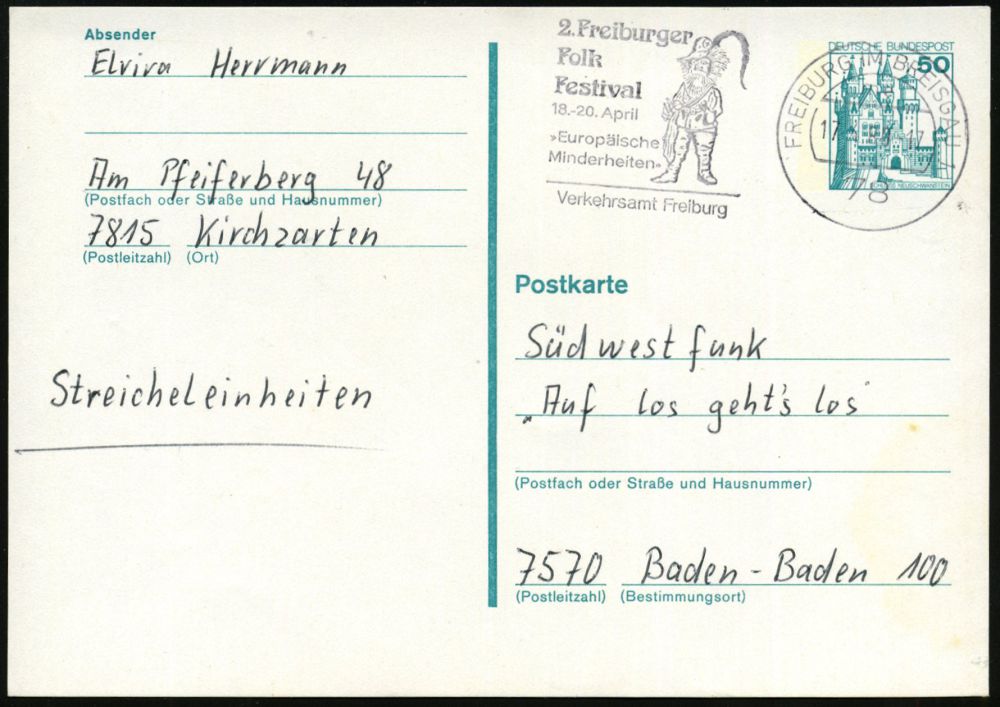 Absender
Elvira Herrmann
Am Pfeiferberg 48
(Postfach oder Straße und Hausnummer)
7815 Kirchzarten
(Postleitzahl) (Ort)
Streicheleinheiten
2. Freiburger
Folk
Festival
18.-20. April
»Europäische
Minderheiten«
Verkehrsamt Freiburg
DEUTSCHE BUNDESPOST
50
FREIBURG IM BREISGAU
78
SCHLOSS NEUSCHWANSTEIN
Postkarte
Südwestfunk
„Auf los geht's los"
(Postfach oder Straße und Hausnummer)
7570 Baden-Baden 100
(Postleitzahl) (Bestimmungsort)